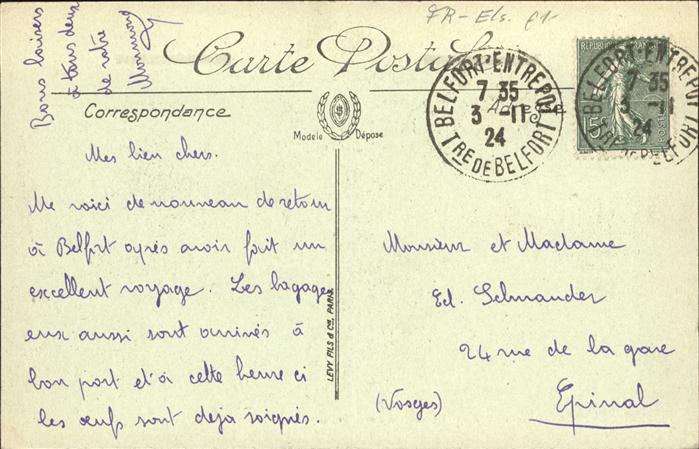 FR-Els. 91-
Bons baisers
à tous deux
de votre
Carte Postale
Correspondance
Modèle Déposé
Adresse
BELFORT-ENTREPOT
7 35
3 - 11
24
TRE DE BELFORT
REPUBLIQUE FRANÇAISE
15c
POSTES
BELFORT-ENTREPOT
7 35
3 - 11
24
TRE DE BELFORT
Mes bien chers.
Me voici de nouveau de retour
à Belfort après avoir fait un
excellent voyage. Les bagages
eux aussi sont arrivés à
bon port et à cette heure ci
les œufs sont déjà soignés.
LEVY FILS & Cie, PARIS
Monsieur et Madame
Ed. Schmander
24 rue de la gare
(Vosges) Epinal